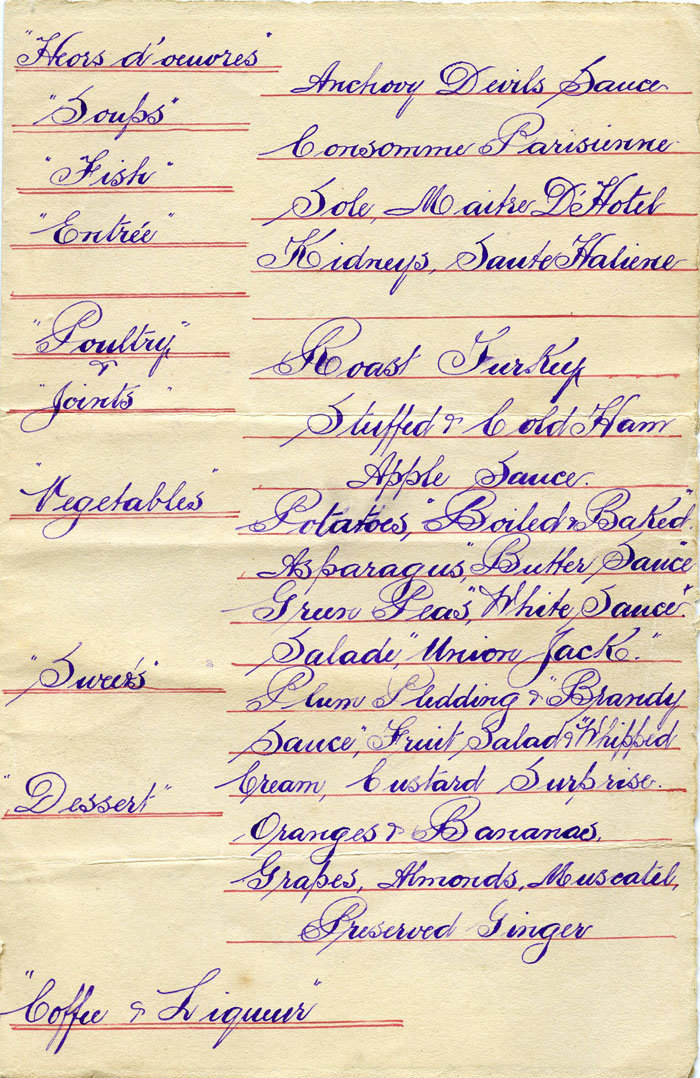 "Heors d'oeuvres"
Anchovy Devils Sauce
"Soups"
Consomme Parisienne
"Fish"
Sole, Maitre D'Hotel
"Entrée"
Kidneys, Saute Italiene
"Poultry"
&
"Joints"
Roast Turkey
Stuffed & Cold Ham
Apple Sauce.
"Vegetables"
Potatoes, "Boiled & Baked"
Asparagus, "Butter Sauce"
Green Peas, "White Sauce".
Salade, "Union Jack."
"Sweets"
Plum Pudding & "Brandy
Sauce", Fruit Salad & "Whipped
Cream, Custard Surprise.
"Dessert"
Oranges & Bananas,
Grapes, Almonds, Muscatel,
Preserved Ginger
"Coffee & Liqueur"